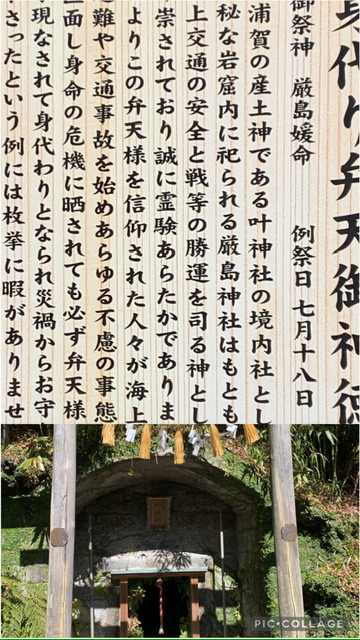 身代り弁天御神徳
御祭神 厳島媛命 例祭日 七月十八日
浦賀の産土神である叶神社の境内社とし
秘な岩窟内に祀られる厳島神社はもとも
上交通の安全と戦等の勝運を司る神とし
崇されており誠に霊験あらたかでありま
よりこの弁天様を信仰された人々が海上
難や交通事故を始めあらゆる不慮の事態
面し身命の危機に晒されても必ず弁天様
現なされて身代わりとなられ災禍からお守
さったという例には枚挙に暇がありませ
PIC•COLLAGE